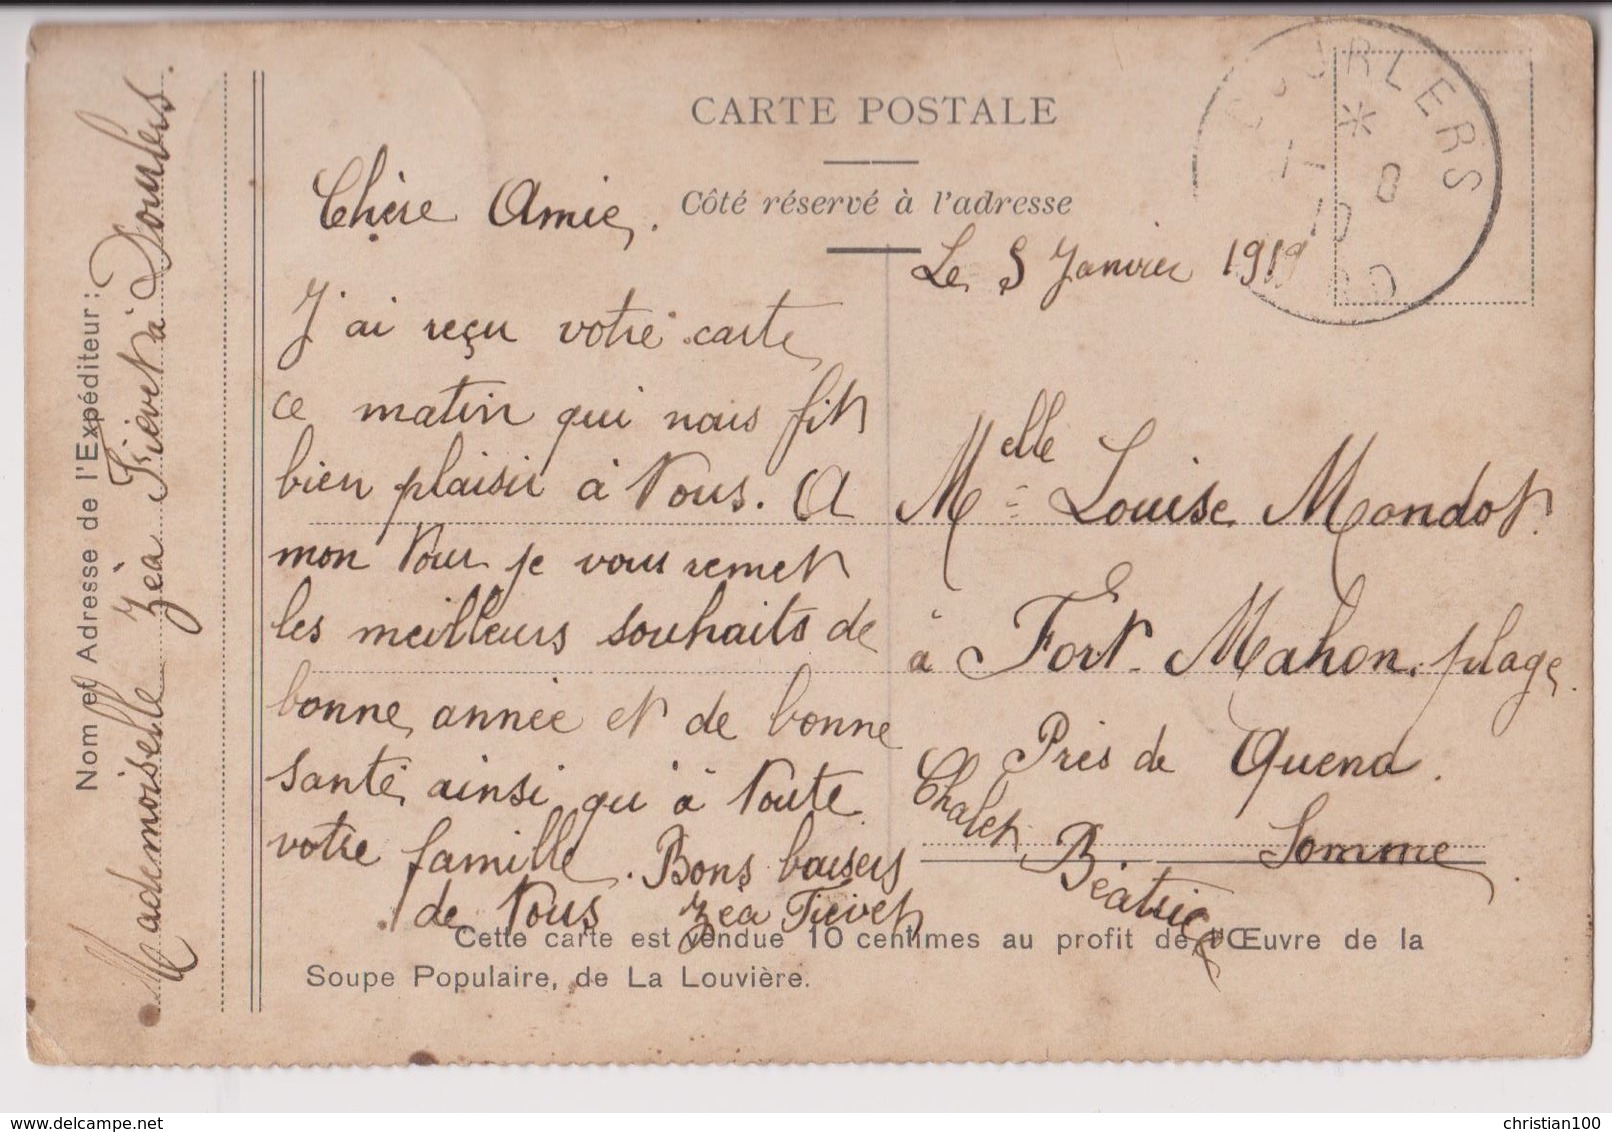 CARTE POSTALE
Côté réservé à l'adresse
Chère Amie.
Le 5 Janvier 1919
J'ai reçu votre carte
ce matin qui nous fit
bien plaisir à tous. A
mon tour je vous remet
les meilleurs souhaits de
bonne année et de bonne
santé ainsi qu'à toute
votre famille. Bons baisers
de tous Zéa Fievet
Melle Louise Mandot.
à Fort-Mahon. plage.
Près de Quend.
Somme
Chalet Béatrice
Cette carte est vendue 10 centimes au profit de l'Œuvre de la
Soupe Populaire, de La Louvière.
Nom et Adresse de l'Expéditeur :
Mademoiselle Zéa Fievet à Dourlers.
DOURLERS
christian100